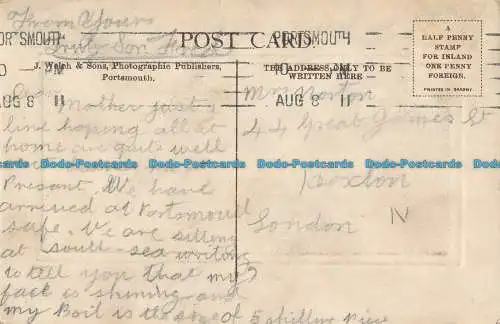 From Yours
Truly Son Fred
PORTSMOUTH
PM
AUG 8 11
POST CARD.
J. Welch & Sons, Photographic Publishers,
Portsmouth.
PORTSMOUTH
AUG 8 11
THE ADDRESS ONLY TO BE
WRITTEN HERE
A
HALF PENNY
STAMP
FOR INLAND
ONE PENNY
FOREIGN.
PRINTED IN SAXONY
Dear Mother just a
line hoping all at
home are quite well
Present. We have
arrived at Portsmouth
safe. We are sitting
at south-sea writing
to tell you that my
face is shining and
my Boil is the size of 5 shilling Piece
Mrs Norton
44 Great James St
Hoxton
London
N
Dodo-Postcards Dodo-Postcards Dodo-Postcards Dodo-Postcards Dodo-Postcards
Dodo-Postcards Dodo-Postcards Dodo-Postcards Dodo-Postcards Dodo-Postcards